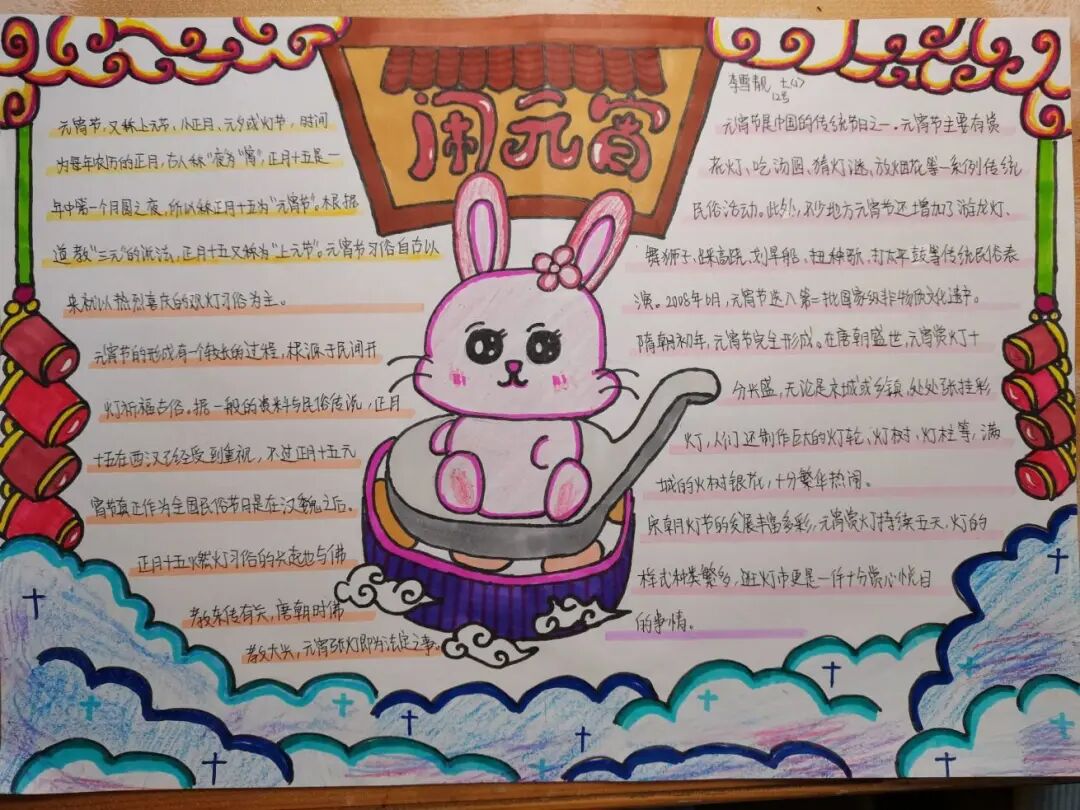 闹元宵
元宵节,又称上元节、小正月、元夕或灯节,时间
为每年农历的正月,古人称“夜”为“宵”,正月十五是一
年中第一个月圆之夜,所以称正月十五为“元宵节”。根据
道教“三元”的说法,正月十五又称为“上元节”。元宵节习俗自古以
来就以热烈喜庆的观灯习俗为主。
元宵节的形成有一个较长的过程,根源于民间开
灯祈福古俗。据一般的资料与民俗传说,正月
十五在西汉已经受到重视,不过正月十五元
宵节真正作为全国民俗节日是在汉魏之后。
正月十五燃灯习俗的兴起也与佛
教东传有关,唐朝时佛
教大兴,元宵张灯即为法定之事。
李雪靓 七(1)
12号
元宵节是中国的传统节日之一。元宵节主要有赏
花灯、吃汤圆、猜灯谜、放烟花等一系列传统
民俗活动。此外,不少地方元宵节还增加了游龙灯、
舞狮子、踩高跷、划旱船、扭秧歌、打太平鼓等传统民俗表
演。2008年6月,元宵节选入第二批国家级非物质文化遗产。
隋朝初年,元宵节完全形成。在唐朝盛世,元宵赏灯十
分兴盛,无论是京城或乡镇,处处张挂彩
灯,人们还制作巨大的灯轮、灯树、灯柱等,满
城的火树银花,十分繁华热闹。
宋朝灯节的发展丰富多彩,元宵赏灯持续五天,灯的
样式种类繁多,逛灯市更是一件十分赏心悦目
的事情。